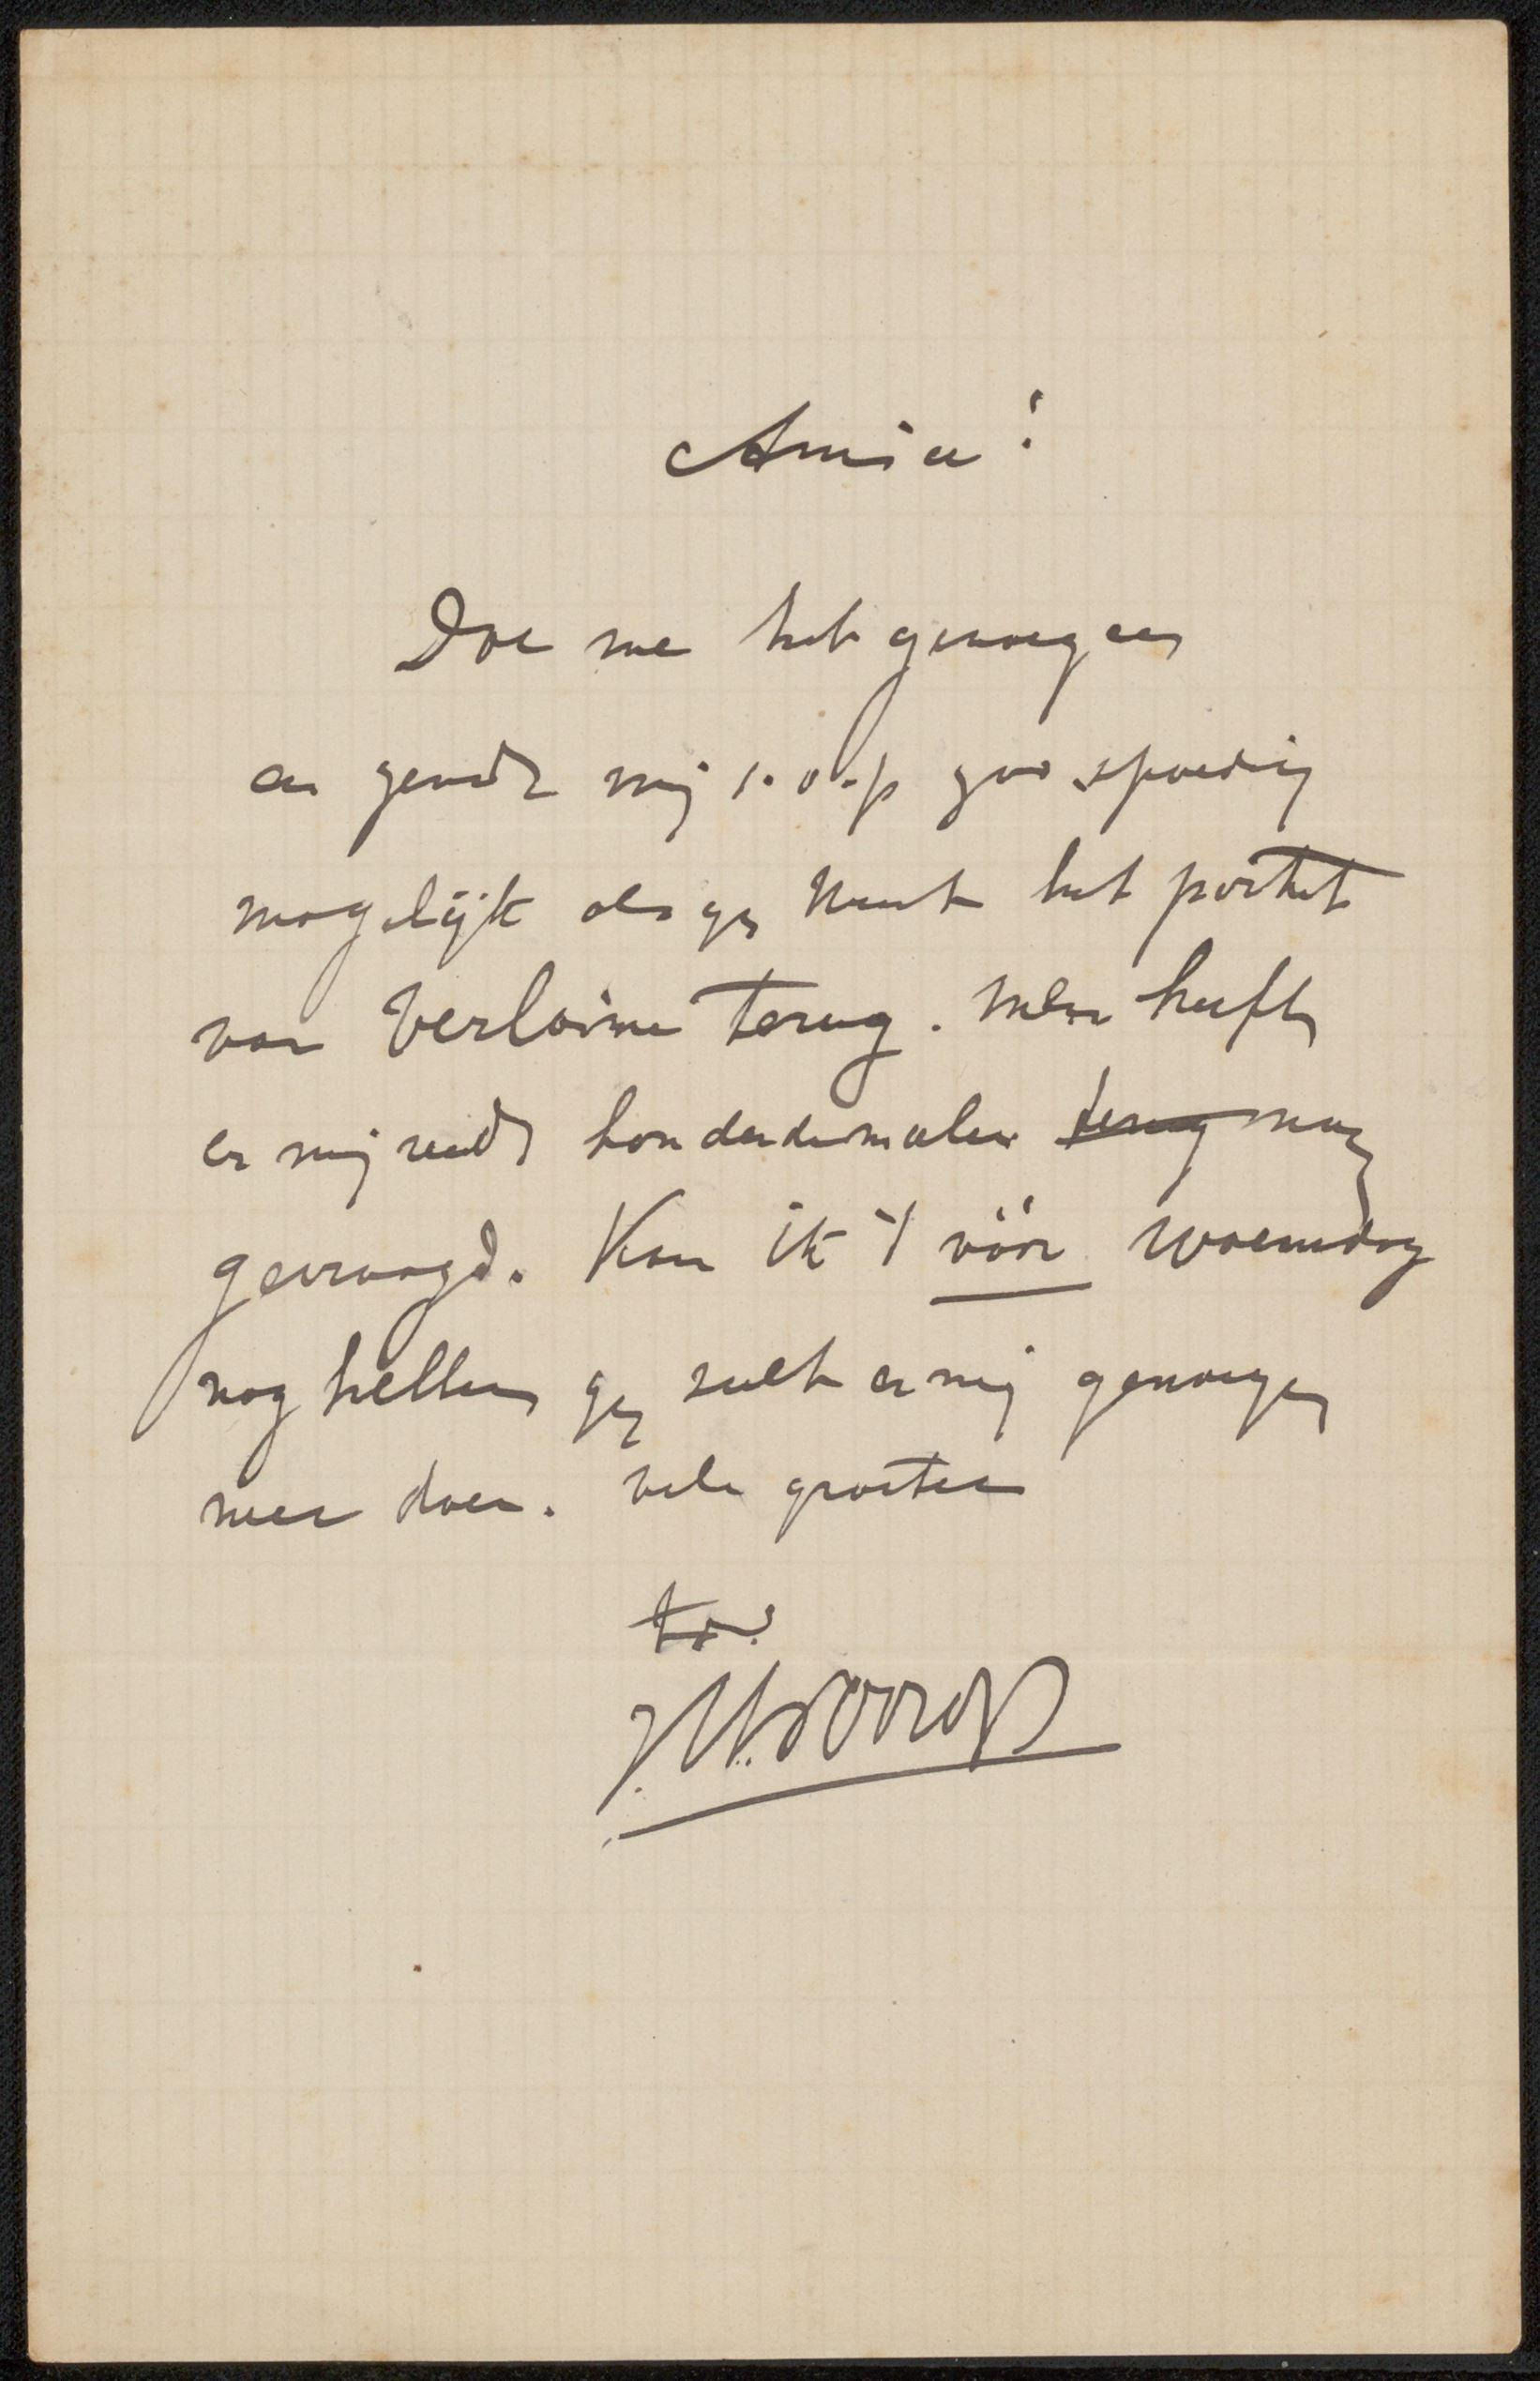 Amice!
Doe me het genoegen
en zendt mij s.v.p zoo spoedig
mogelijk als gy kunt het portret
van Verlaine terug. Men heeft
er mij reeds honderdemalen terug naar
gevraagd. Kan ik 't vóór woensdag
nog hebben gy zult er mij genoegen
mee doen. vele groeten
tt.
J. Th. Toorop